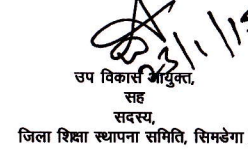 23/1/1
उप विकास आयुक्त,
सह
सदस्य,
जिला शिक्षा स्थापना समिति, सिमडेगा